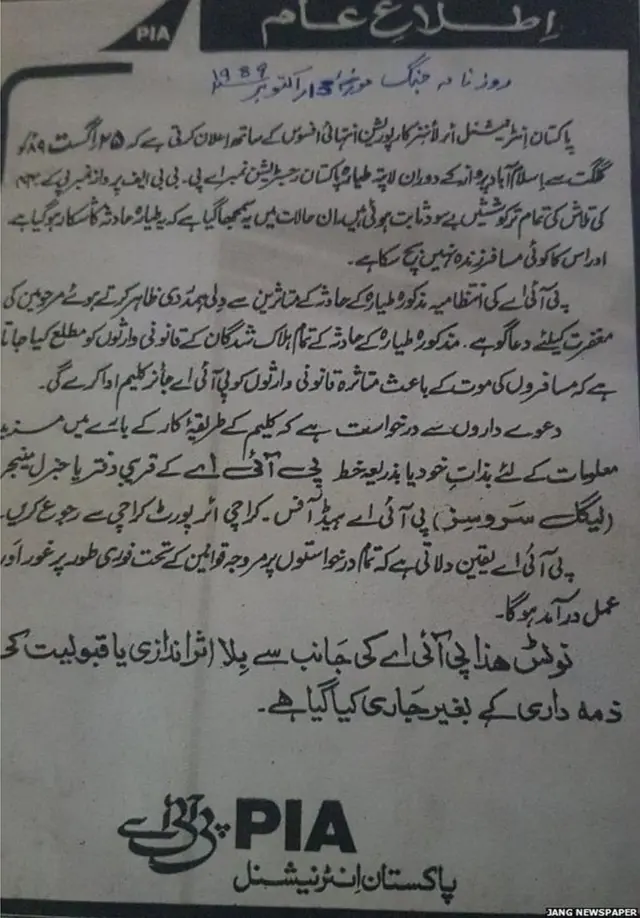 PIA
اِطلاعِ عام
روزنامہ جنگ مورخہ 15 اکتوبر 1989
پاکستان انٹرنیشنل ائرلائنز کارپوریشن انتہائی افسوس کے ساتھ اعلان کرتی ہے کہ ۲۵ اگست ۸۹ء کو
گلگت سے اسلام آباد پرواز کے دوران لاپتہ طیارہ پاکستان رجسٹریشن نمبر اے پی۔ بی بی ایف پرواز نمبر پی کے
کی تلاش کی تمام تر کوششیں بے سود ثابت ہوئی ہیں، ان حالات میں یہ سمجھا گیا ہے کہ یہ طیارہ حادثہ کا شکار ہو گیا ہے
اور اس کا کوئی مسافر زندہ نہیں بچ سکا ہے۔
پی آئی اے کی انتظامیہ مذکورہ طیارہ کے حادثہ کے متاثرین سے دلی ہمدردی ظاہر کرتے ہوئے مرحومین کی
مغفرت کیلئے دعاگو ہے۔ مذکورہ طیارہ کے حادثہ کے تمام ہلاک شدگان کے قانونی وارثوں کو مطلع کیا جاتا
ہے کہ مسافروں کی موت کے باعث متاثرہ قانونی وارثوں کو پی آئی اے جائز کلیم ادا کرے گی۔
دعوے داروں سے درخواست ہے کہ کلیم کے طریقۂ کار کے بارے میں مزید
معلومات کے لئے بذاتِ خود یا بذریعہ خط پی آئی اے کے قریبی دفتر یا جنرل مینیجر
(لیگل سروسز) پی آئی اے ہیڈ آفس۔ کراچی ائرپورٹ کراچی سے رجوع کریں۔
پی آئی اے یقین دلاتی ہے کہ تمام درخواستوں پر مروجہ قوانین کے تحت فوری طور پر غور اور
عمل درآمد ہوگا۔
نوٹس ھذا پی آئی اے کی جانب سے بِلا اثر اندازی یا قبولیت کی
ذمہ داری کے بغیر جاری کیا گیا ہے۔
PIA پی آئی اے
پاکستان انٹرنیشنل
JANG NEWSPAPER